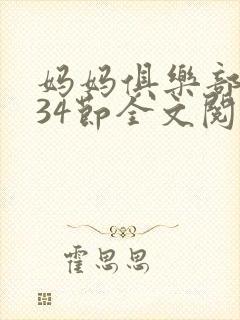 妈妈俱樂部
34節全文閱
霍思思